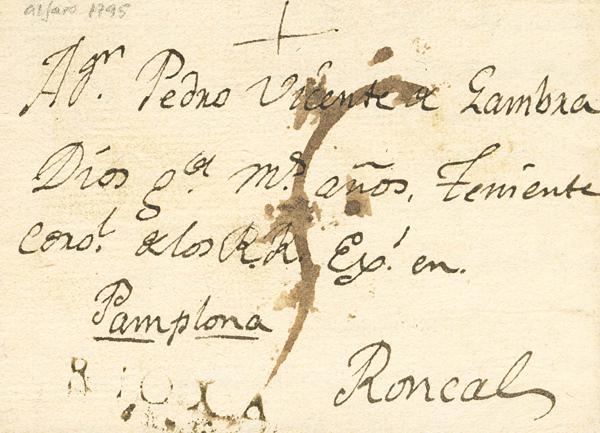 alfaro 1795
A gn. Pedro Vicente de Gambra
Dios gde. ms. años, Teniente
Coro.l de los R.R. Exs. en.
Pamplona
Roncal
RIOXA